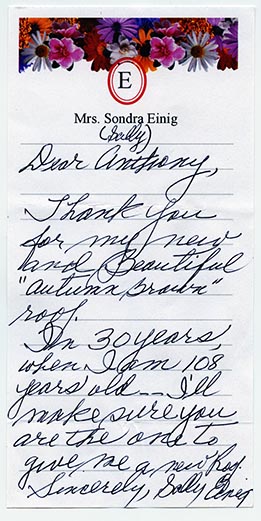 E
Mrs. Sondra Einig
(Sally)
Dear Anthony,
Thank You
for my new
and Beautiful
"autumn brown"
roof.
In 30 years,
when I am 108
years old -- I'll
make sure you
are the one to
give me a new Roof.
Sincerely, Sally Einig